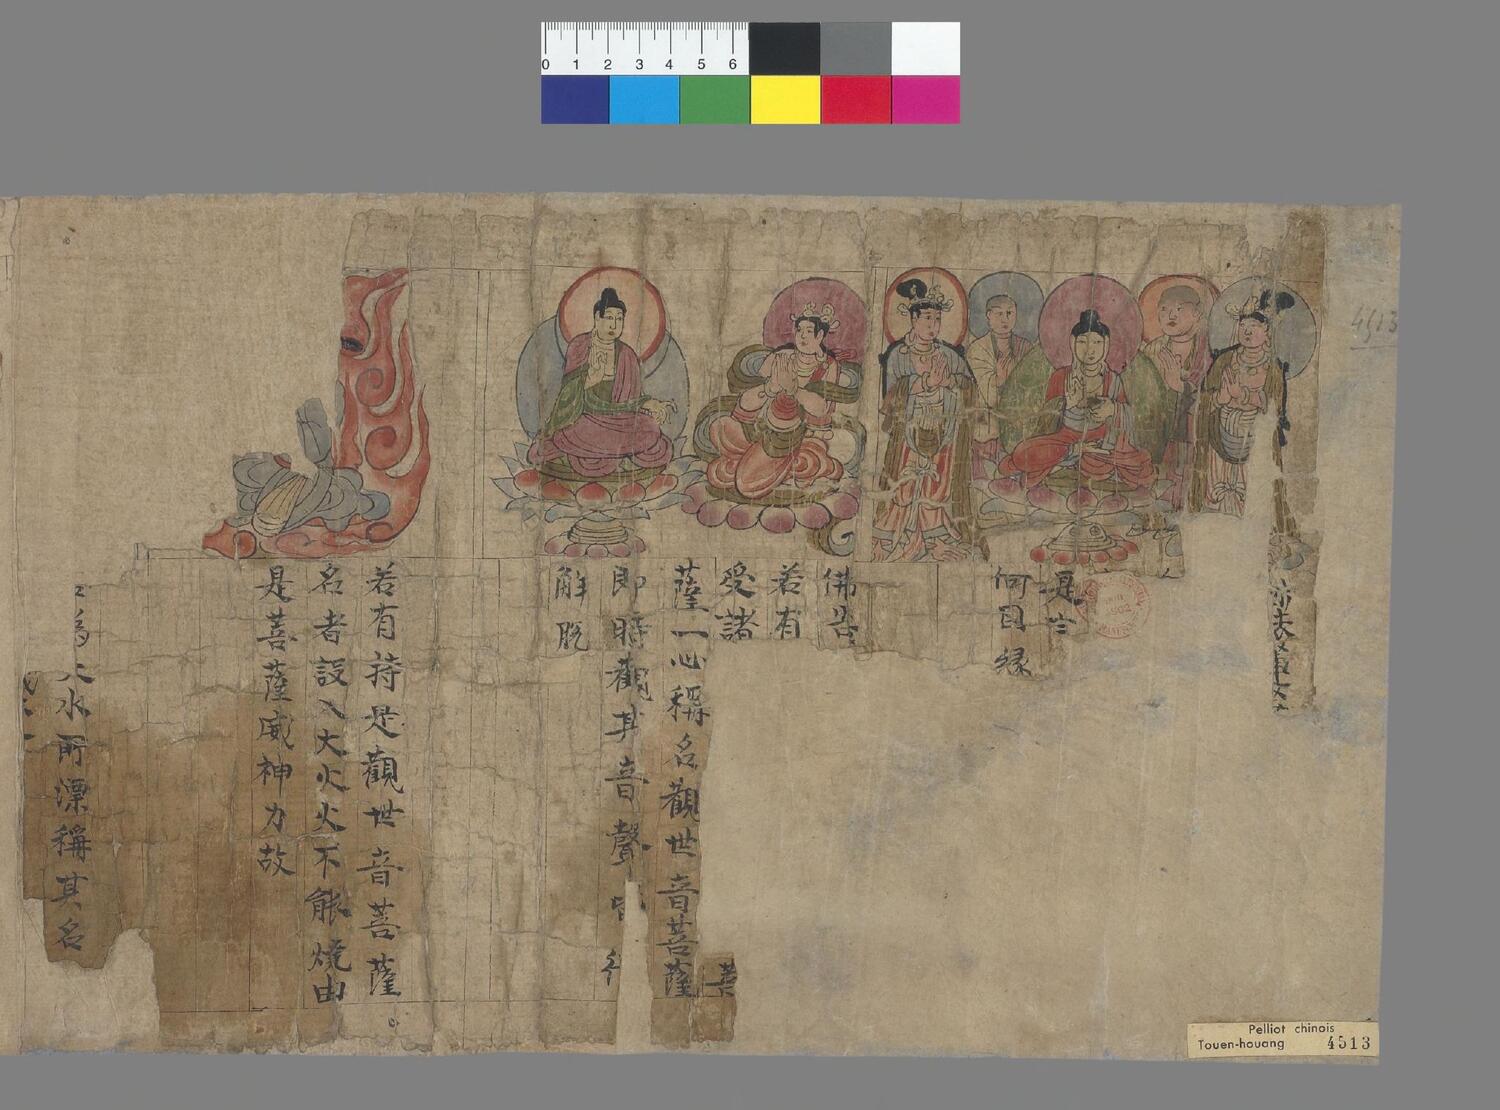 何因緣
佛告
若有
受諸
菩
薩一心稱名觀世音菩薩
即時觀其音聲皆
解脫
若有持是觀世音菩薩
名者設入大火火不能燒由
是菩薩威神力故
為大水所漂稱其名
4513
0 1 2 3 4 5 6
Pelliot chinois
Touen-houang 4513